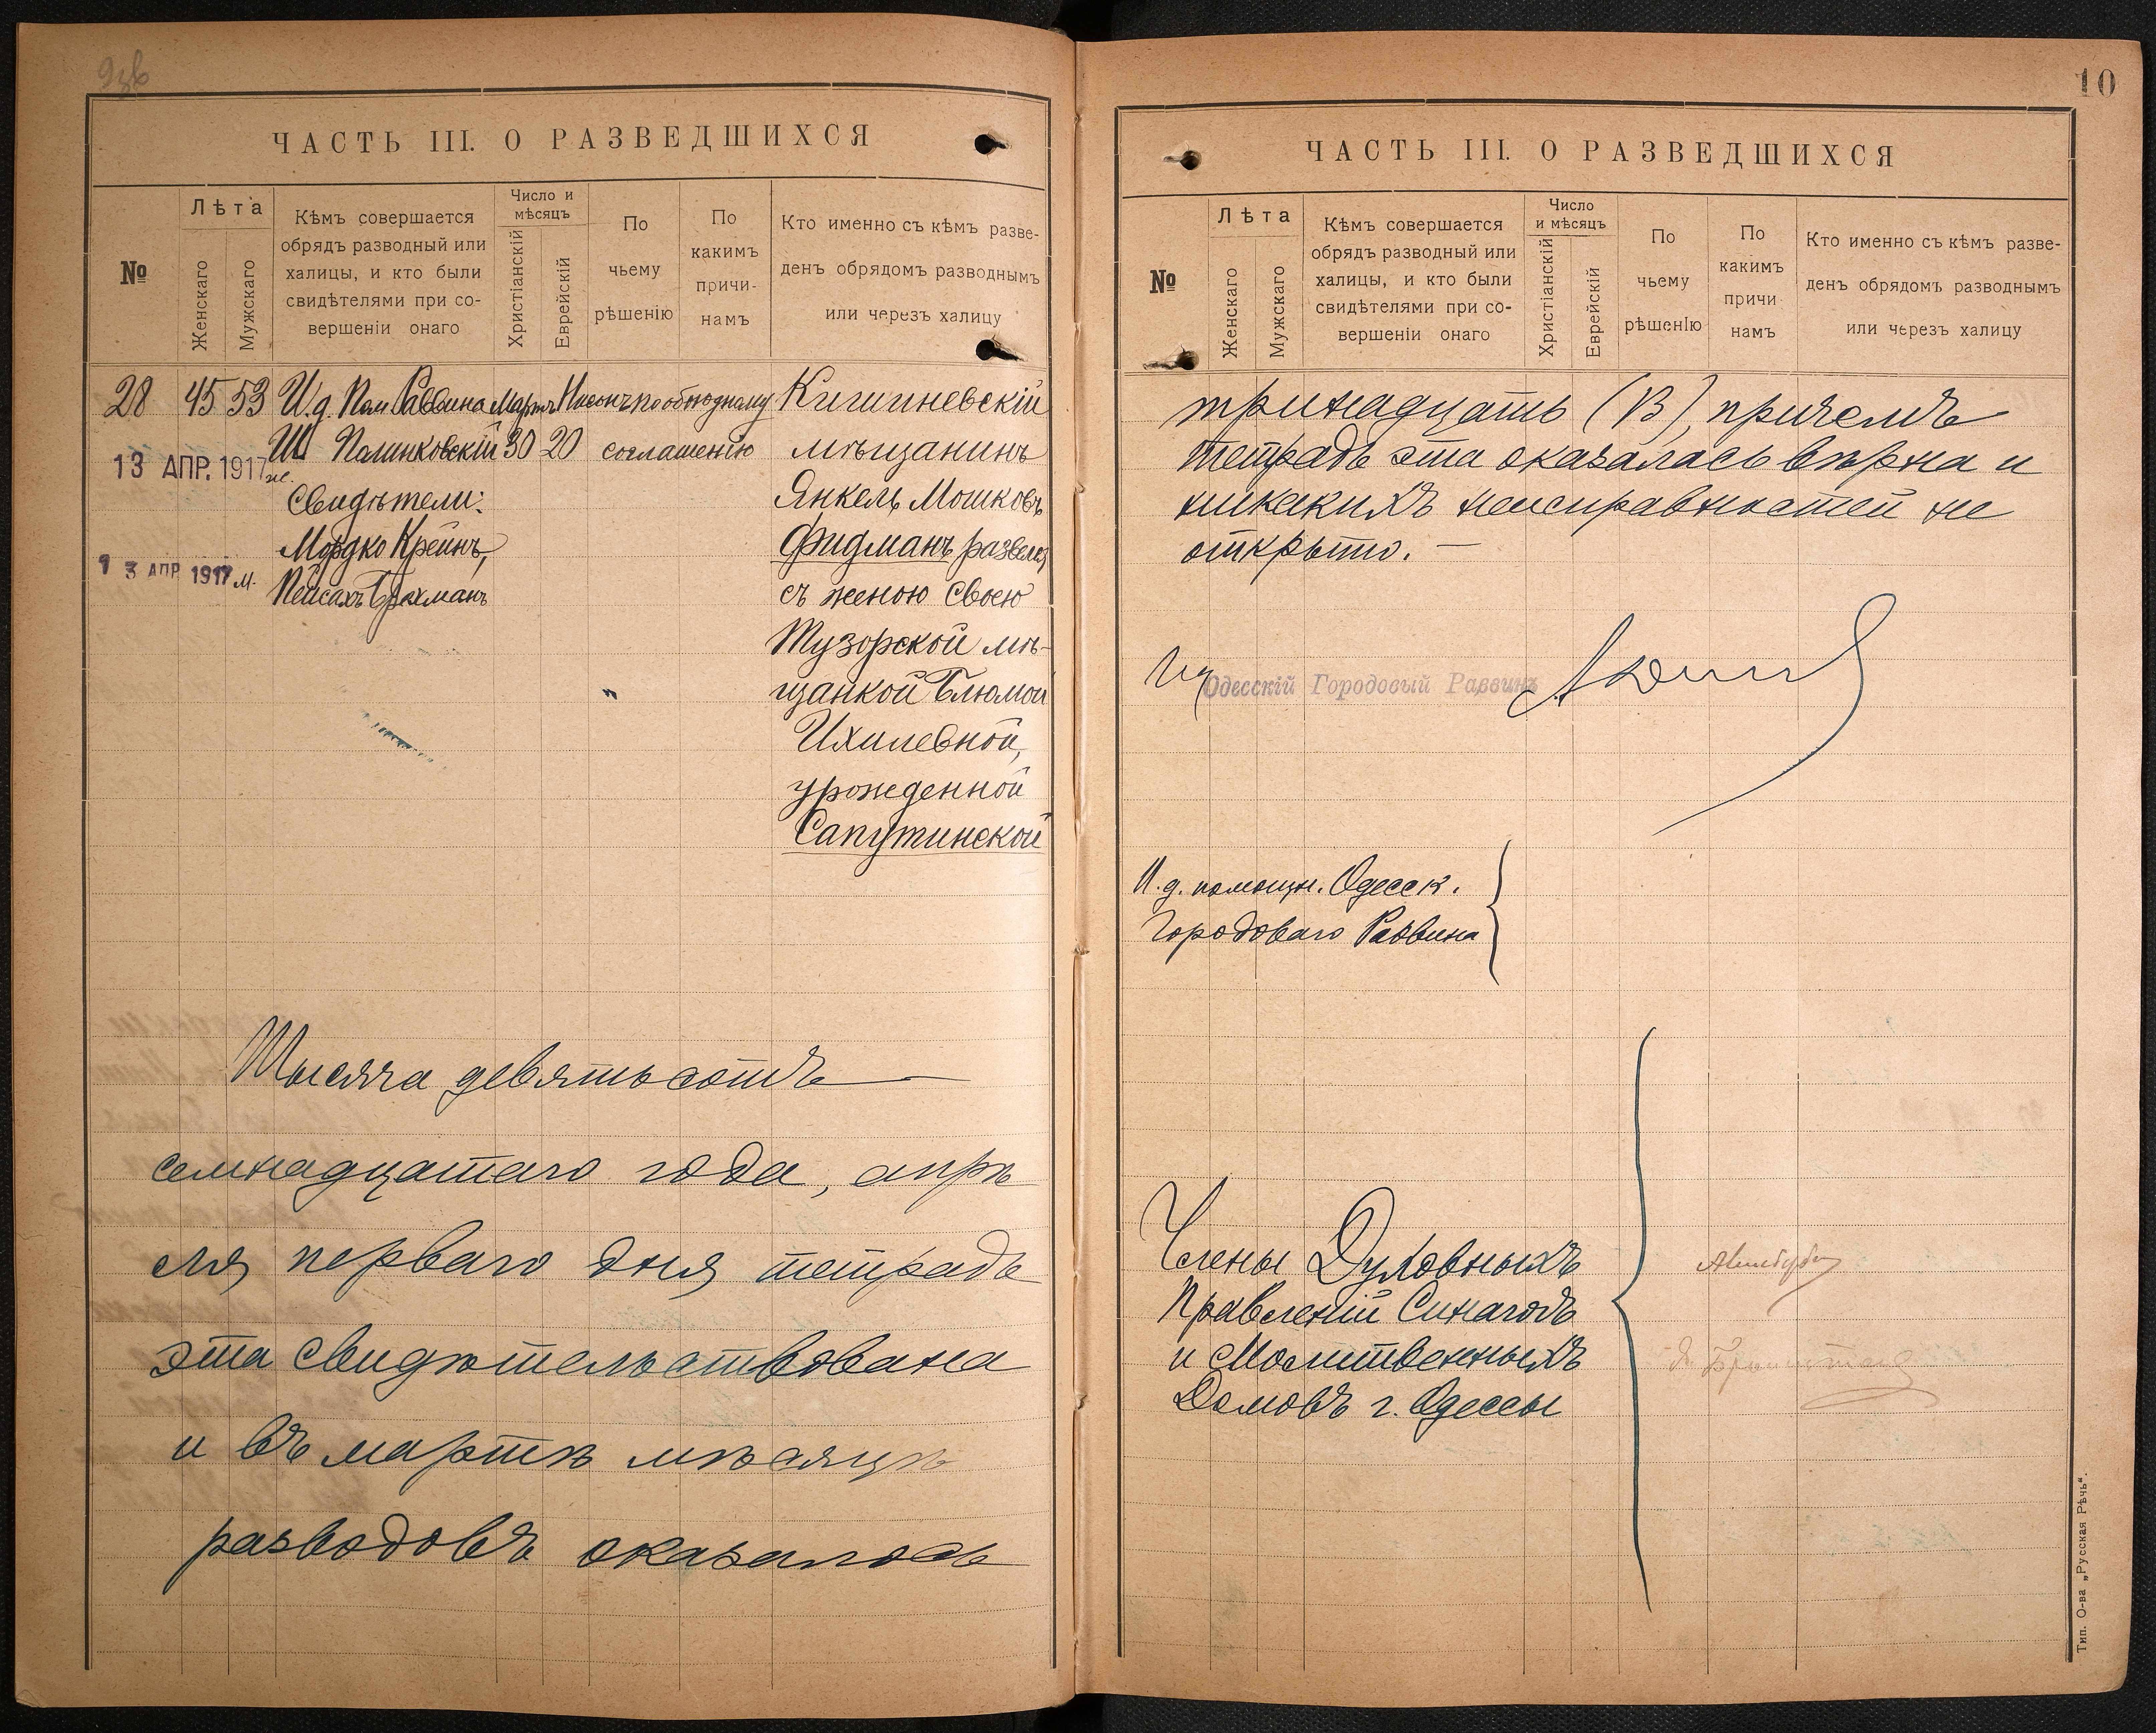 ЧАСТЬ III. О РАЗВЕДШИХСЯ
№
Лѣта
Женскаго
Мужскаго
Кѣмъ совершается
обрядъ разводный или
халицы, и кто были
свидѣтелями при со-
вершеніи онаго
Число и
мѣсяцъ
Христіанскій
Еврейскій
По
чьему
рѣшенію
По
какимъ
причи-
намъ
Кто именно съ кѣмъ разве-
денъ обрядомъ разводнымъ
или черезъ халицу
28 45 53 И.д. Пом Раввина Мартъ Нисонъ по обоюдному Кишиневскій
Ш Полинковскій 30 20 соглашенію мѣщанинъ
13 АПР. 1917 ж.
Свидѣтели: Янкель Мошковъ
Мордко Крейнъ, Фидманъ развелся
1 3 АПР 1917 м.
Пейсахъ Брахманъ съ женою своею
Тузорской мѣ-
" щанкой Блюмой
Ихилевной,
урожденной
Сапутинской
Тысяча девятьсотъ
семнадцатаго года, апрѣ
ля перваго дня тетрадь
эта свидѣтельствована
и въ мартѣ мѣсяцѣ
разводовъ оказалось
10
ЧАСТЬ III. О РАЗВЕДШИХСЯ
№
Лѣта
Женскаго
Мужскаго
Кѣмъ совершается
обрядъ разводный или
халицы, и кто были
свидѣтелями при со-
вершеніи онаго
Число
и мѣсяцъ
Христіанскій
Еврейскій
По
чьему
рѣшенію
По
какимъ
причи
намъ
Кто именно съ кѣмъ разве-
денъ обрядомъ разводнымъ
или черезъ халицу
тринадцать (13), причемъ
тетрадь эта оказалась вѣрна и
никакихъ неисправностей не
открыто. —
Одесскій Городовый Раввинъ
И.д. помощн. Одесск.
Городоваго Раввина
Члены Духовныхъ
Правленій Синагогъ
и Молитвенныхъ
Домовъ г. Одессы
Тип. О-ва „Русская Рѣчь“.